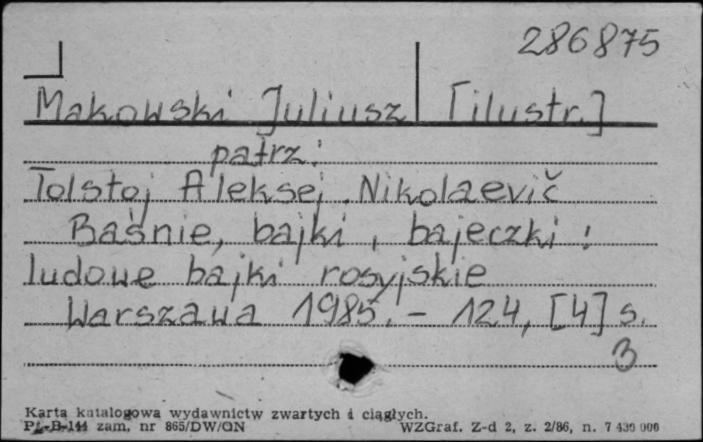 286875
Makowski Juliusz [ilustr.]
patrz:
Tolstoj Aleksej Nikolaevič
Baśnie, bajki, bajeczki :
ludowe bajki rosyjskie
Warszawa 1985. - 124, [4] s.
3
Karta katalogowa wydawnictw zwartych i ciągłych.
Pż-B-144 zam. nr 865/DW/ON WZGraf. Z-d 2, z. 2/86, n. 7 430 000